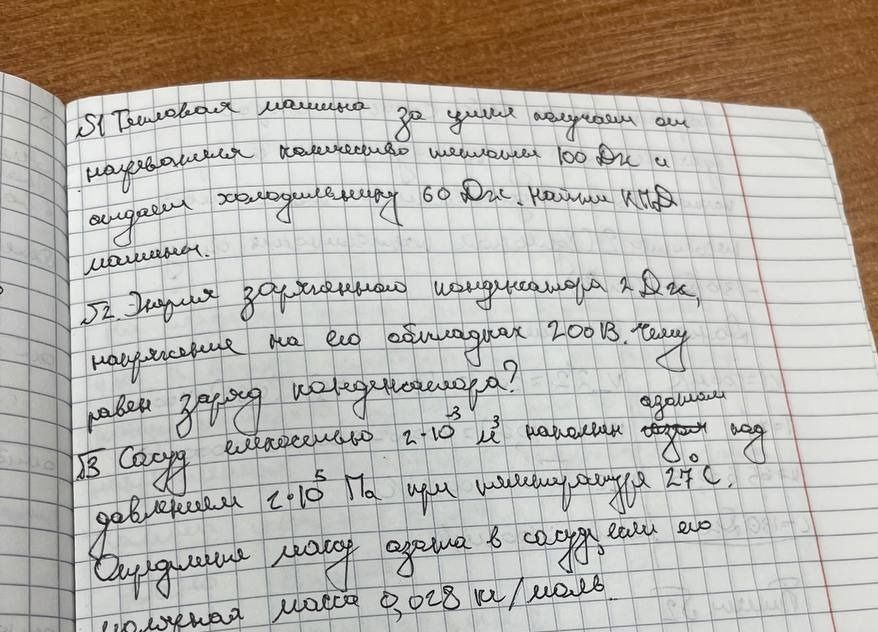 №1 Тепловая машина за цикл получает от
нагревателя количество теплоты 100 Дж и
отдает холодильнику 60 Дж. Найти КПД
машины.
№2. Энергия заряженного конденсатора 2 Дж,
напряжение на его обкладках 200 В. Чему
равен заряд конденсатора?
азотом
№3 Сосуд емкостью 2·10⁻³ м³ наполнен под
давлением 2·10⁵ Па при температуре 27°С.
Определите массу азота в сосуде, если его
молярная масса 0,028 кг/моль.